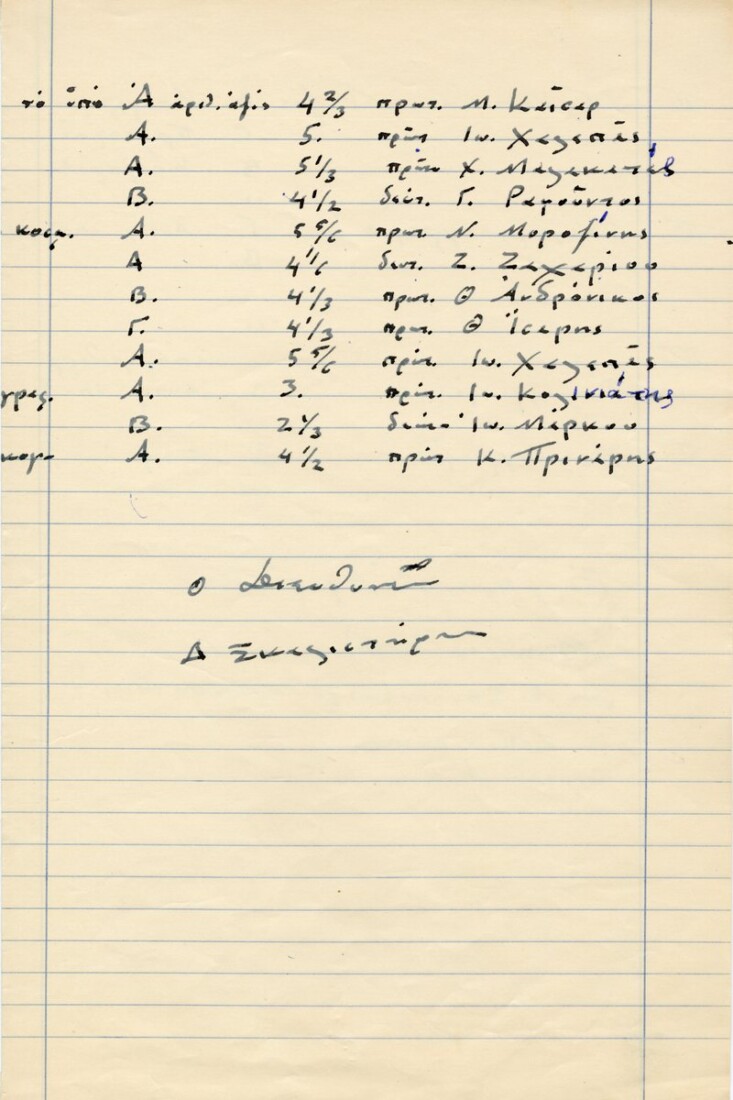 τὸ ὑπὸ Α ἀριθ. 4 2/3 πρωτ. Μ. Καῖσαρ
Α. 5. πρῶτ Ιω. Χαλεπᾶς
Α. 5 1/3 πρῶτ Χ. Μαλακατές
Β. 4 1/2 δεύτ. Γ. Ραφοῦντος
κοσμ. Α. 5 5/6 πρωτ Ν. Μοροζίνης
Α 4 1/6 δευτ. Ζ. Ζαχαρίου
Β. 4 1/3 πρωτ. Θ Ἀνδρόνικος
Γ. 4 1/3 πρωτ. Θ Ἴσαρης
Α. 5 5/6 πρώτ. Ιω. Χαλεπᾶς
γραφ. Α. 3. πρώτ. Ιω. Κολινιάτης
Β. 2 1/3 δεύτ. Ιω. Μάρκου
κοσμ. Α. 4 1/2 πρώτ Κ. Πρινάρης
Ο Διευθυντὴς
Δ Σκαλιστήρης